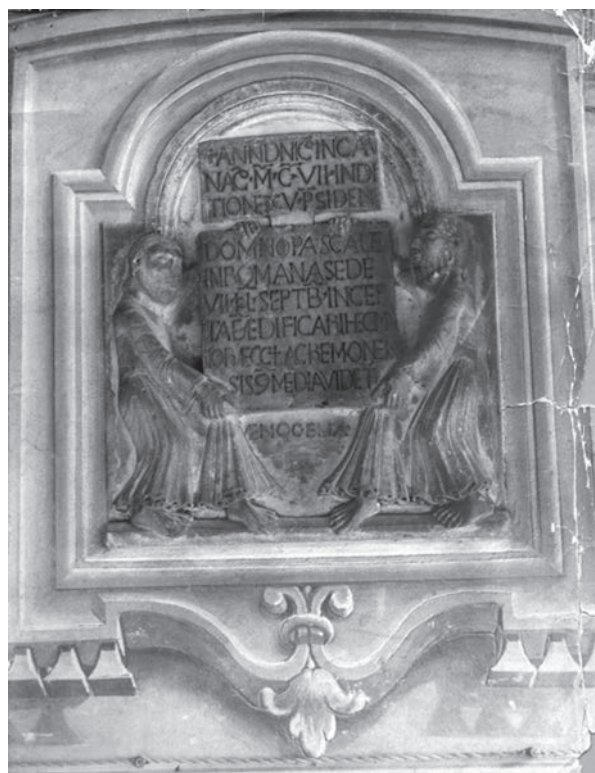 +ANN DNIC INCAR
NAC·M·C·VII·INDI
TIONE XV·PSIDEN
DOMNO PASCALE
IN ROMANA SEDE
VII·KL·SEPTB·INCEP
TA E EDIFICARI HEC M
IOR ECCLA CREMONEN
SIS 9 MEDIA VIDET
ENOC ELIA